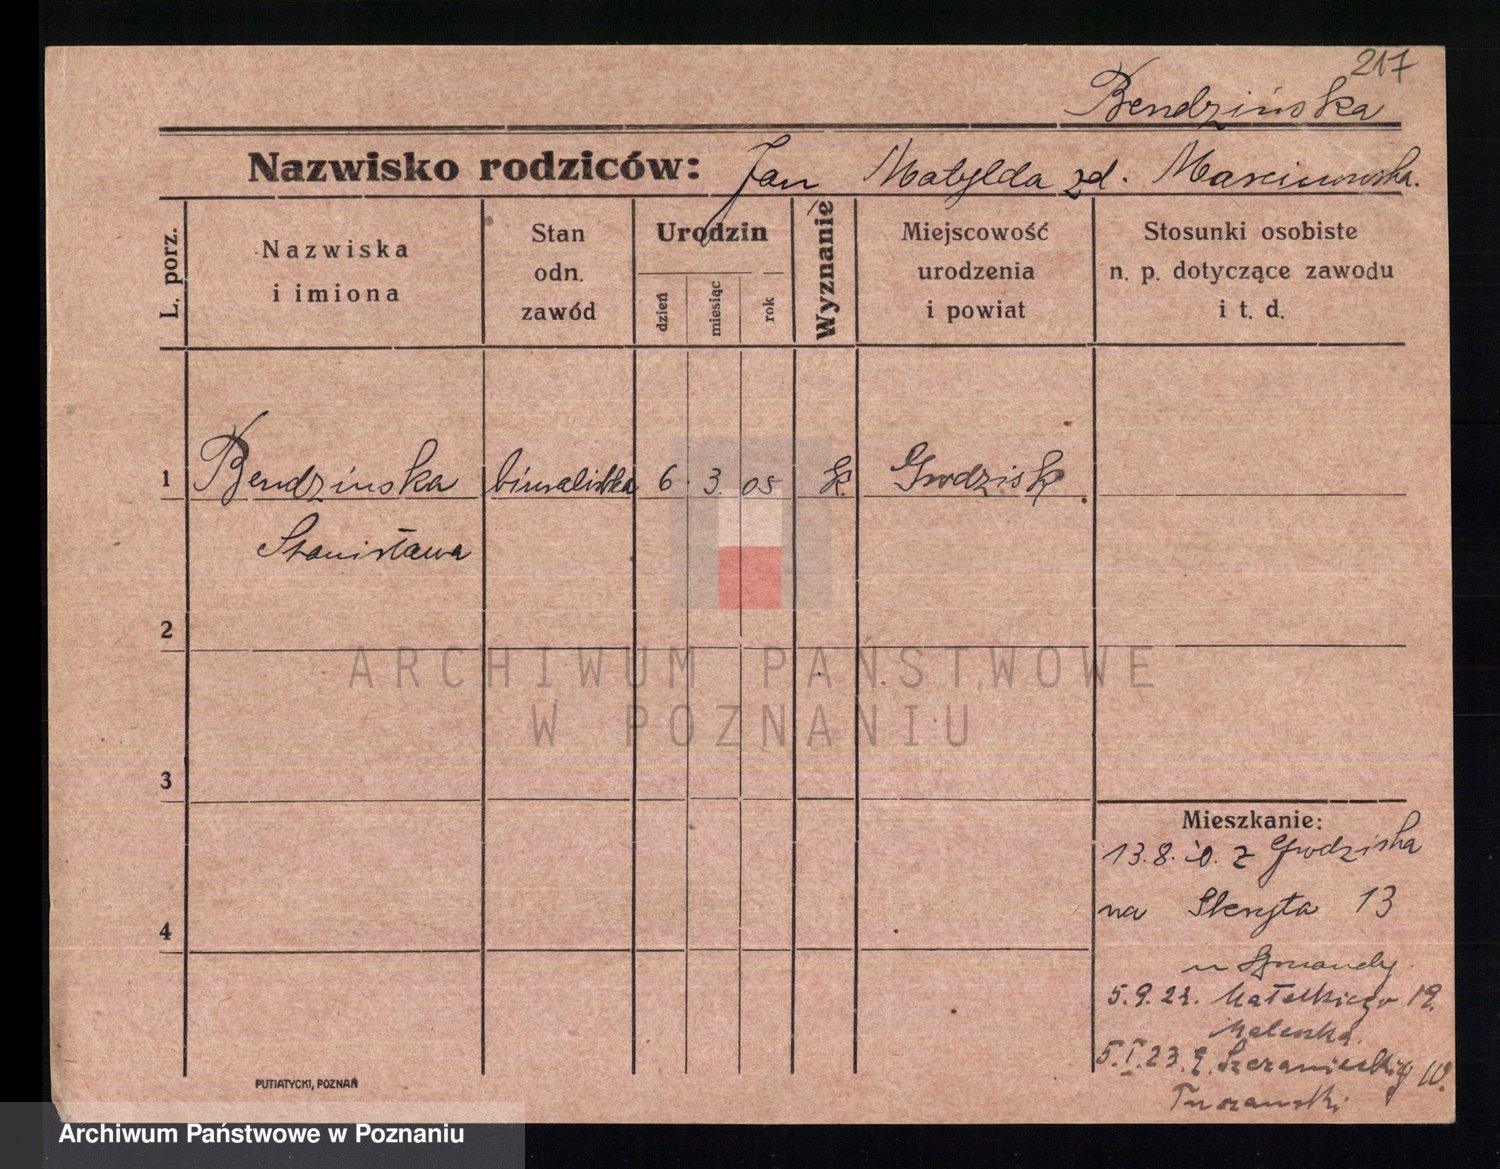 217
Bendzińska
Nazwisko rodziców: Jan Matylda zd. Marcinowska.
L. porz.
Nazwiska
i imiona
Stan
odn.
zawód
Urodzin
dzień
miesiąc
rok
Wyznanie
Miejscowość
urodzenia
i powiat
Stosunki osobiste
n. p. dotyczące zawodu
i t. d.
1 Bendzińska biuralistka 6. 3. 05 k. Grodzisk
Stanisława
2
ARCHIWUM PAŃSTWOWE
W POZNANIU
3
Mieszkanie:
13.8. z Grodziska
na Skryta 13
u
5.9.22. Małeckiego 19.
5.I.23. 10.
4
PUTIATYCKI, POZNAŃ
Archiwum Państwowe w Poznaniu